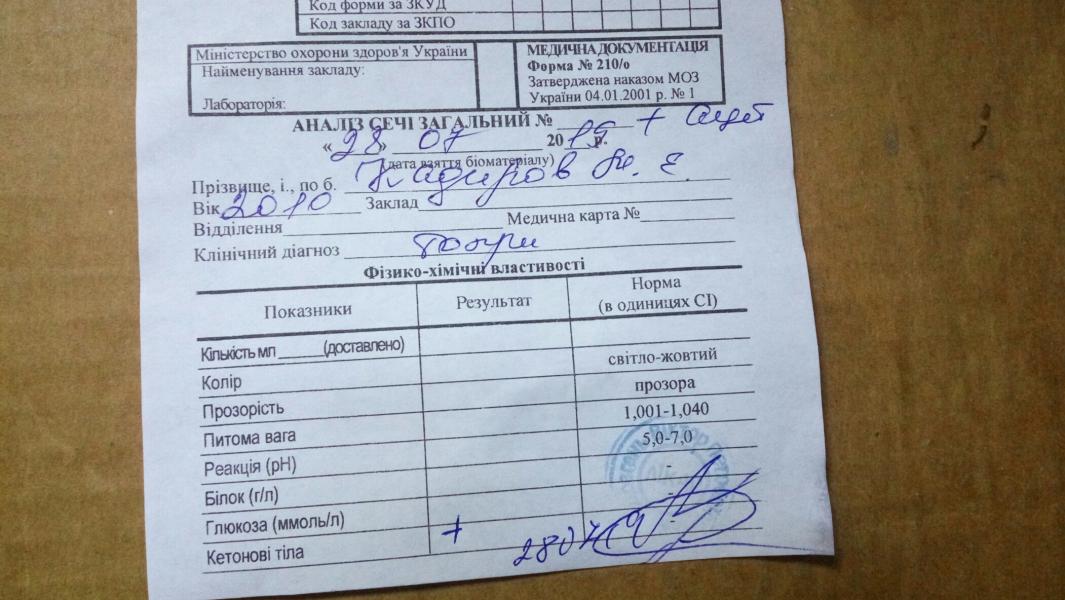 Код форми за ЗКУД
Код закладу за ЗКПО
Міністерство охорони здоров'я України
Найменування закладу:
Лабораторія:
МЕДИЧНА ДОКУМЕНТАЦІЯ
Форма № 210/о
Затверджена наказом МОЗ
України 04.01.2001 р. № 1
АНАЛІЗ СЕЧІ ЗАГАЛЬНИЙ № +
«28» 07 2019 р.
(дата взяття біоматеріалу)
Прізвище, і., по б.
Вік 2010 Заклад
Відділення Медична карта №
Клінічний діагноз
Фізико-хімічні властивості
Показники Результат Норма
(в одиницях СІ)
Кількість мл (доставлено)
Колір світло-жовтий
Прозорість прозора
Питома вага 1,001-1,040
Реакція (pH) 5,0-7,0
Білок (г/л) -
Глюкоза (ммоль/л) -
Кетонові тіла + 280719